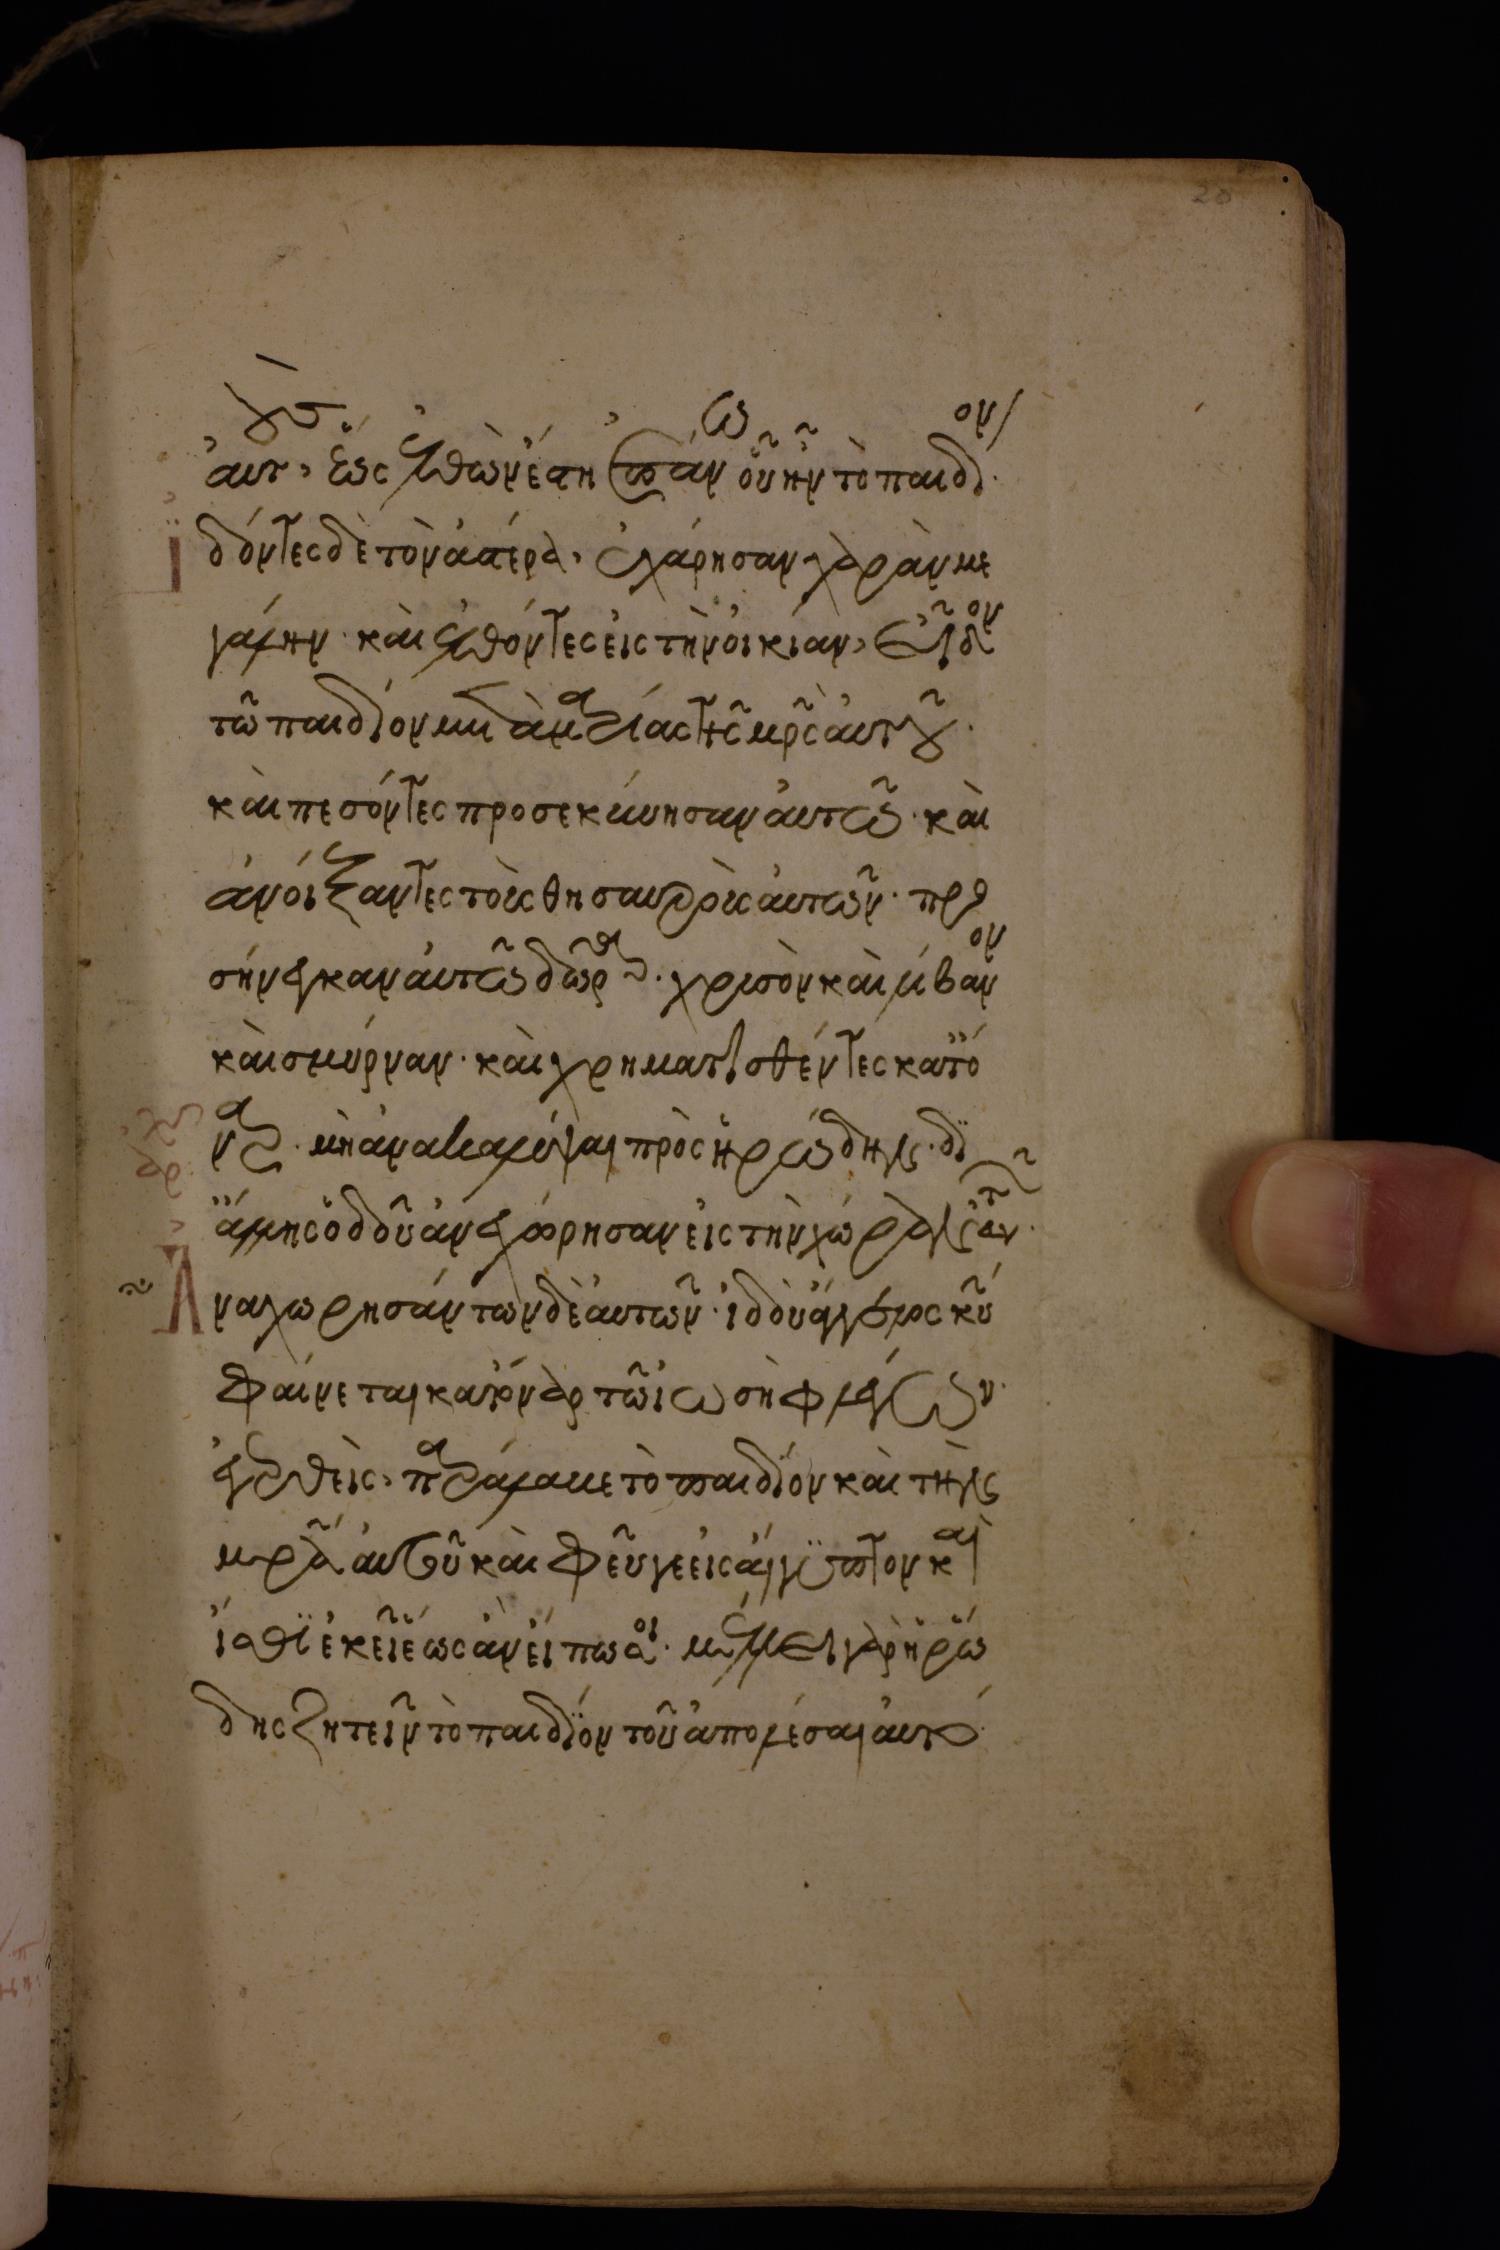 20
αὐτοὺς, ἕως ἐλθὼν ἔστη ἐπάνω οὗ ἦν τὸ παιδίον.
ἰδόντες δὲ τὸν ἀστέρα, ἐχάρησαν χαρὰν με
γάλην. καὶ ἐλθόντες εἰς τὴν οἰκίαν, εἶδον
τῶ παιδίον μετὰ μαρίας τῆς μρ̅ς αὐτοῦ.
καὶ πεσόντες προσεκύνησαν αὐτῶ. καὶ
ἀνοίξαντες τοὺς θησαυροὺς αὐτῶν. προ
σήνεγκαν αὐτῶ δῶρα. χρυσὸν καὶ λίβανον
καὶ σμύρναν. καὶ χρηματισθέντες κατ ὄ
ναρ. μὴ ἀνακάμψαι πρὸς ἡρώδην. δι
ἄλλης ὁδοῦ ἀνεχώρησαν εἰς τὴν χώραν αὐτῶν.
Ἀναχωρησάντων δὲ αὐτῶν. ἰδοὺ ἄγγελος κυ̅
φαίνεται κατ ὄναρ τῶ ἰωσὴφ λέγων.
ἐγερθεὶς, παράλαβε τὸ παιδίον καὶ τὴν
μρ̅α αὐτοῦ καὶ φεῦγε εἰς αἴγυπτον καὶ
ἴσθι ἐκεῖ ἕως ἂν εἴπω σοι. μέλλει γὰρ ἡρώ
δης ζητεῖν τὸ παιδίον τοῦ ἀπολέσαι αὐτό.